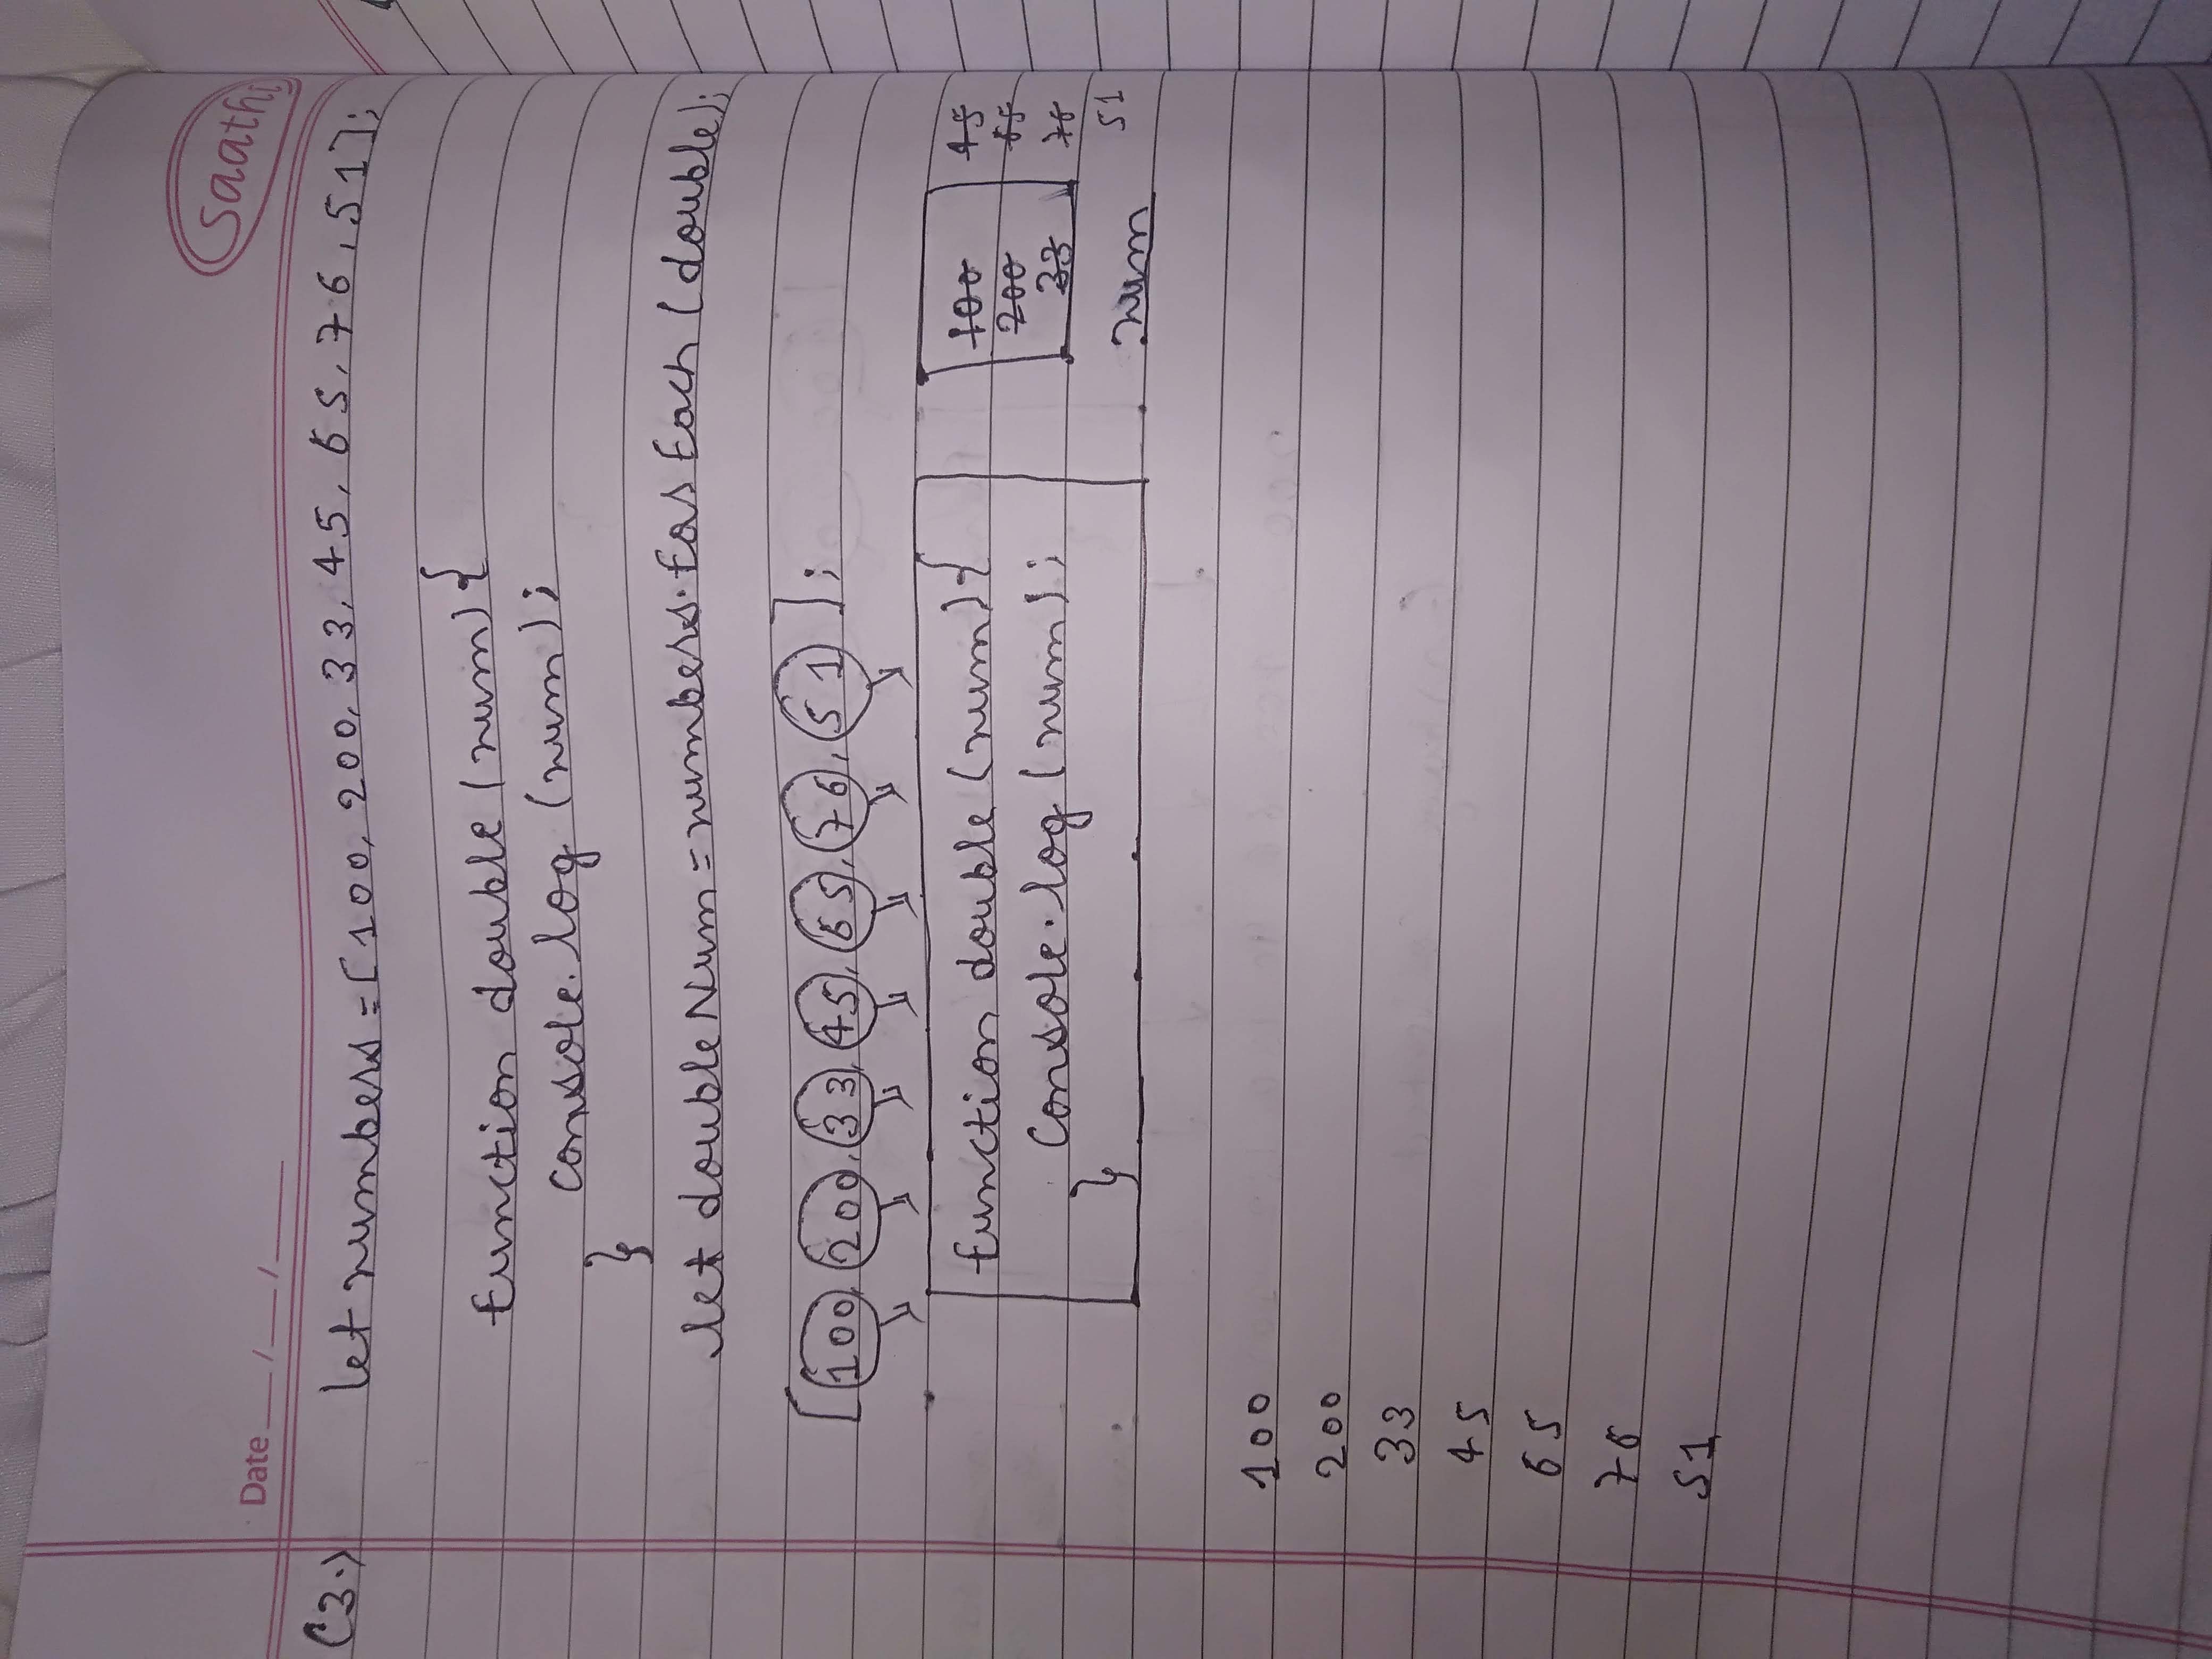 Saathi
Date ___/___/___
(3.) let numbers = [100, 200, 33, 45, 65, 76, 51];
function double (num) {
console.log (num);
}
let doubleNum = numbers.forEach (double);
[100, 200, 33, 45, 65, 76, 51];
function double (num) {
console.log (num);
}
100 45
200 65
33 76
51
num
100
200
33
45
65
76
51